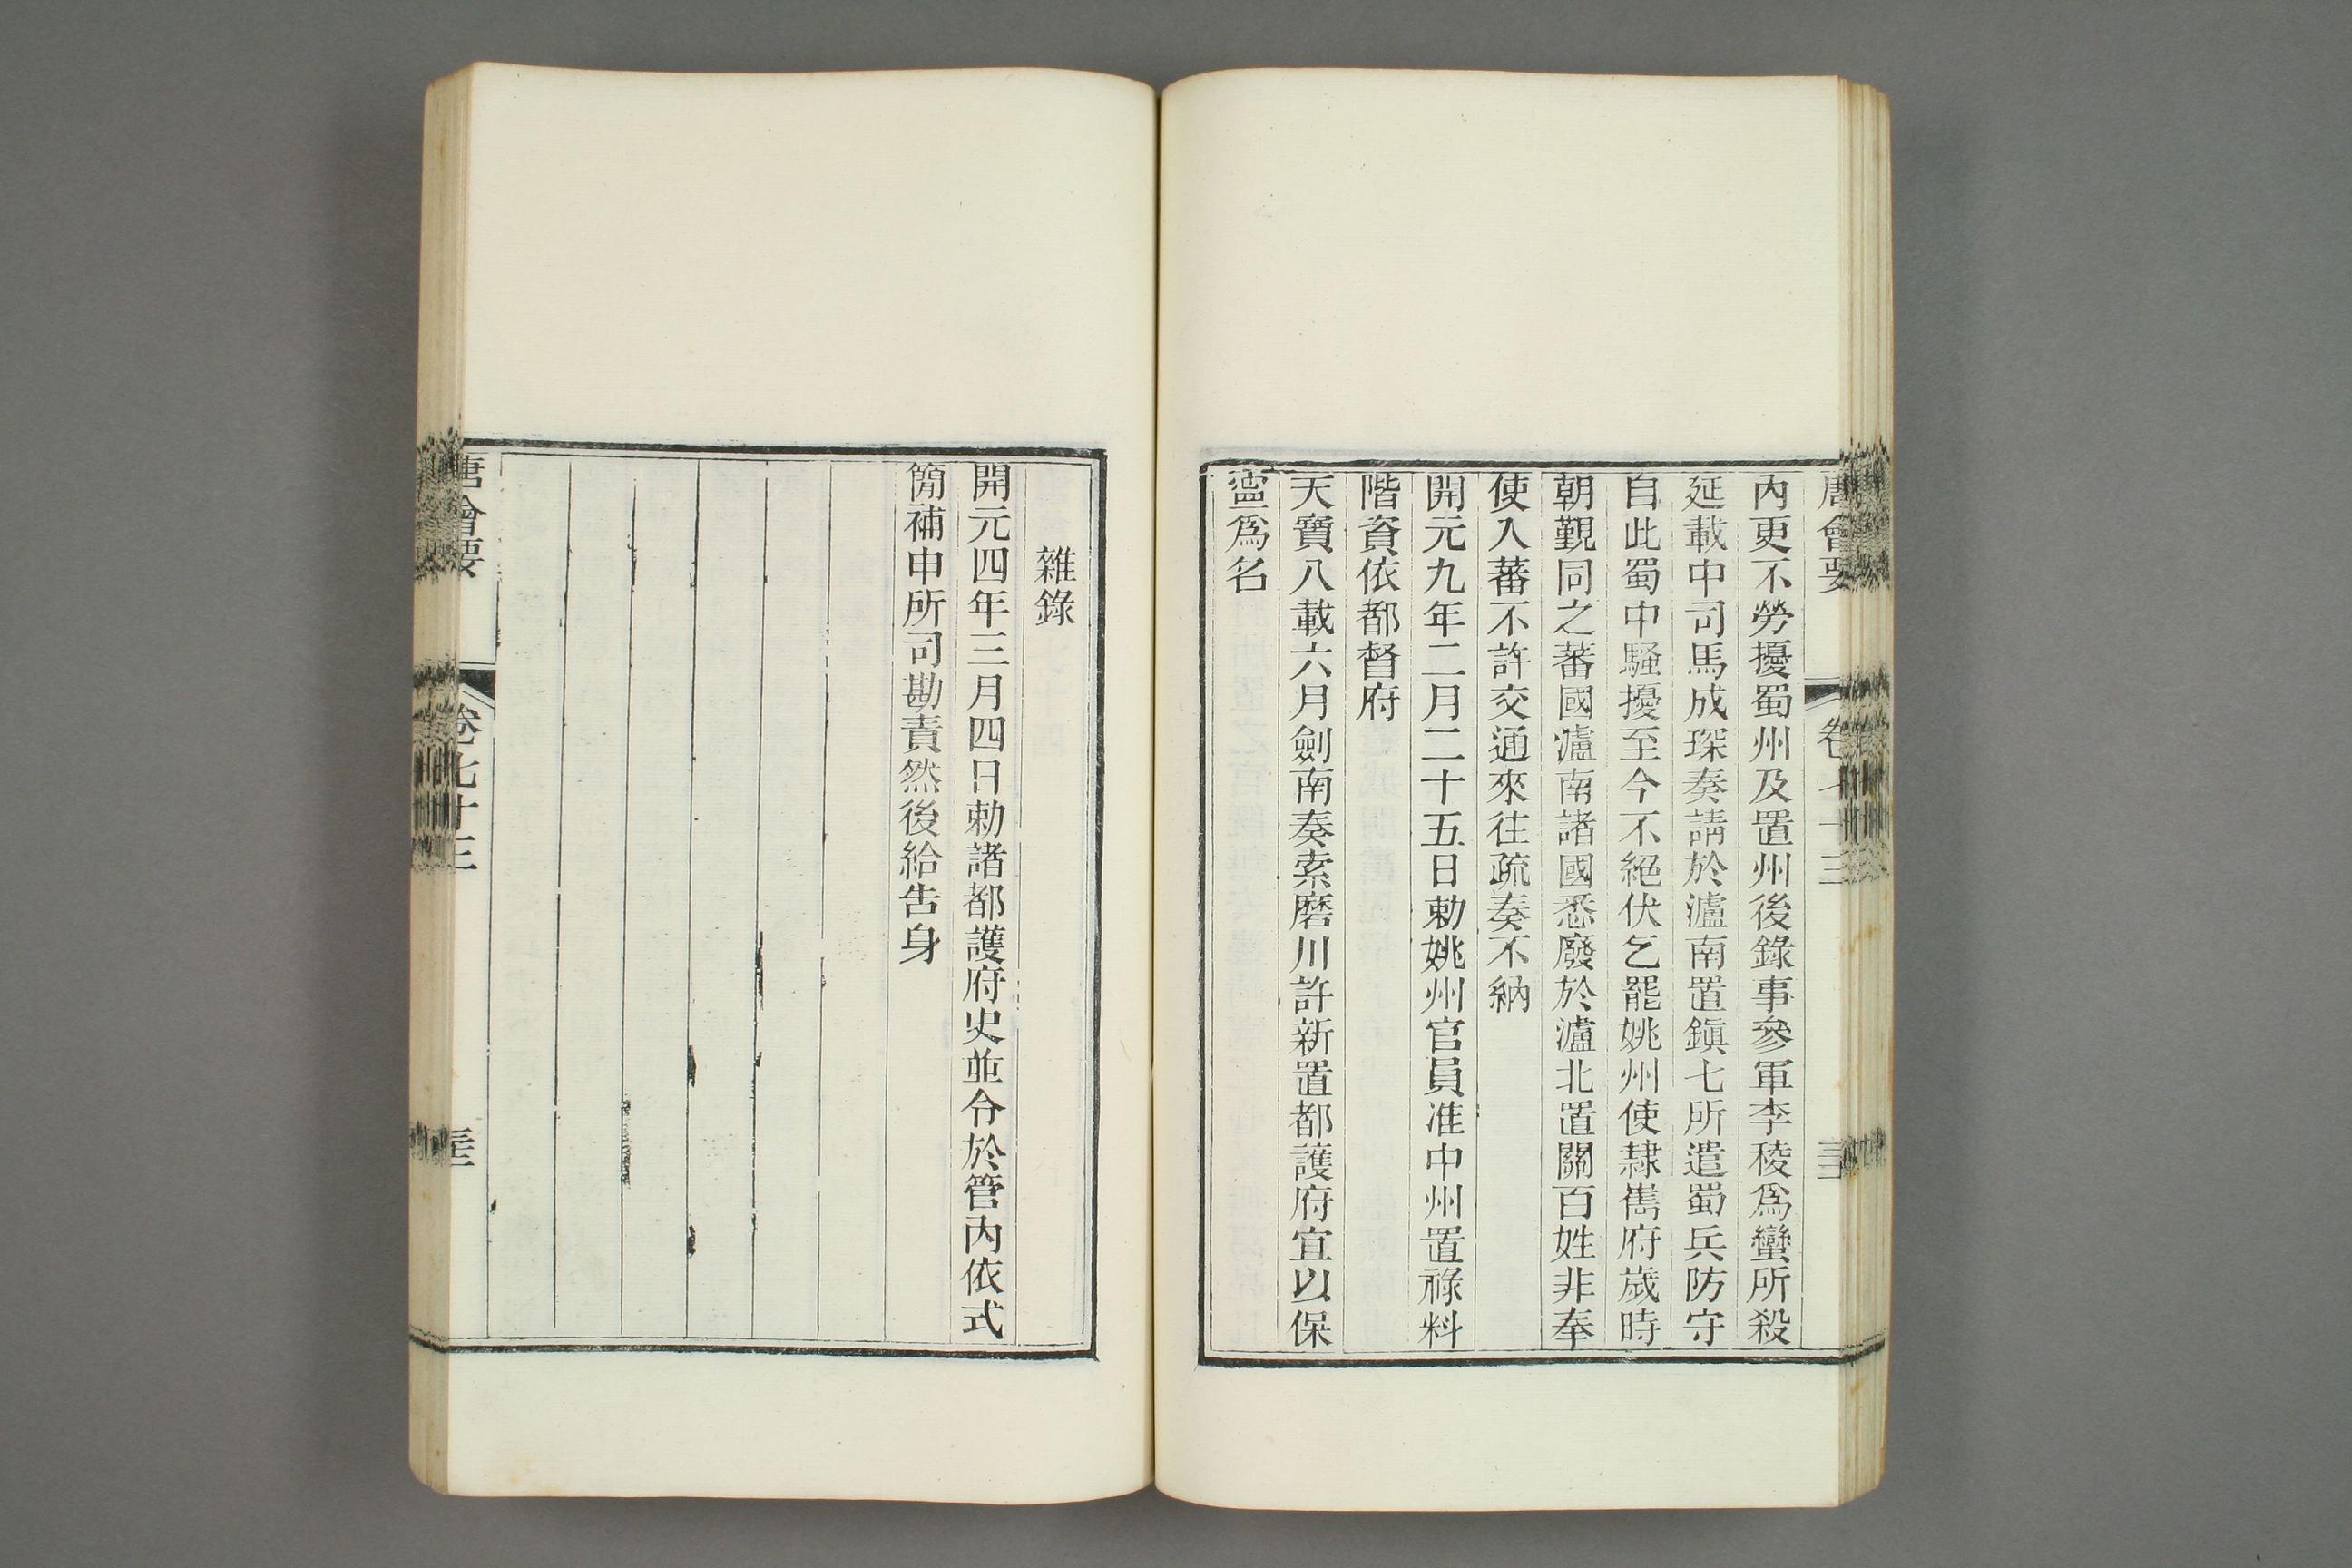 唐會要 卷七十三
內更不勞擾蜀州及置州後錄事參軍李稜爲蠻所殺
延載中司馬成琛奏請於瀘南置鎭七所遣蜀兵防守
自此蜀中騷擾至今不絕伏乞罷姚州使隸巂府歲時
朝覲同之蕃國瀘南諸國悉廢於瀘北置關百姓非奉
使入蕃不許交通來往疏奏不納
開元九年二月二十五日勅姚州官員准中州置祿料
階資依都督府
天寶八載六月劍南奏索磨川許新置都護府宜以保
寍爲名
雜錄
開元四年三月四日勅諸都護府史並令於管內依式
簡補申所司勘責然後給告身
唐會要 卷七十三